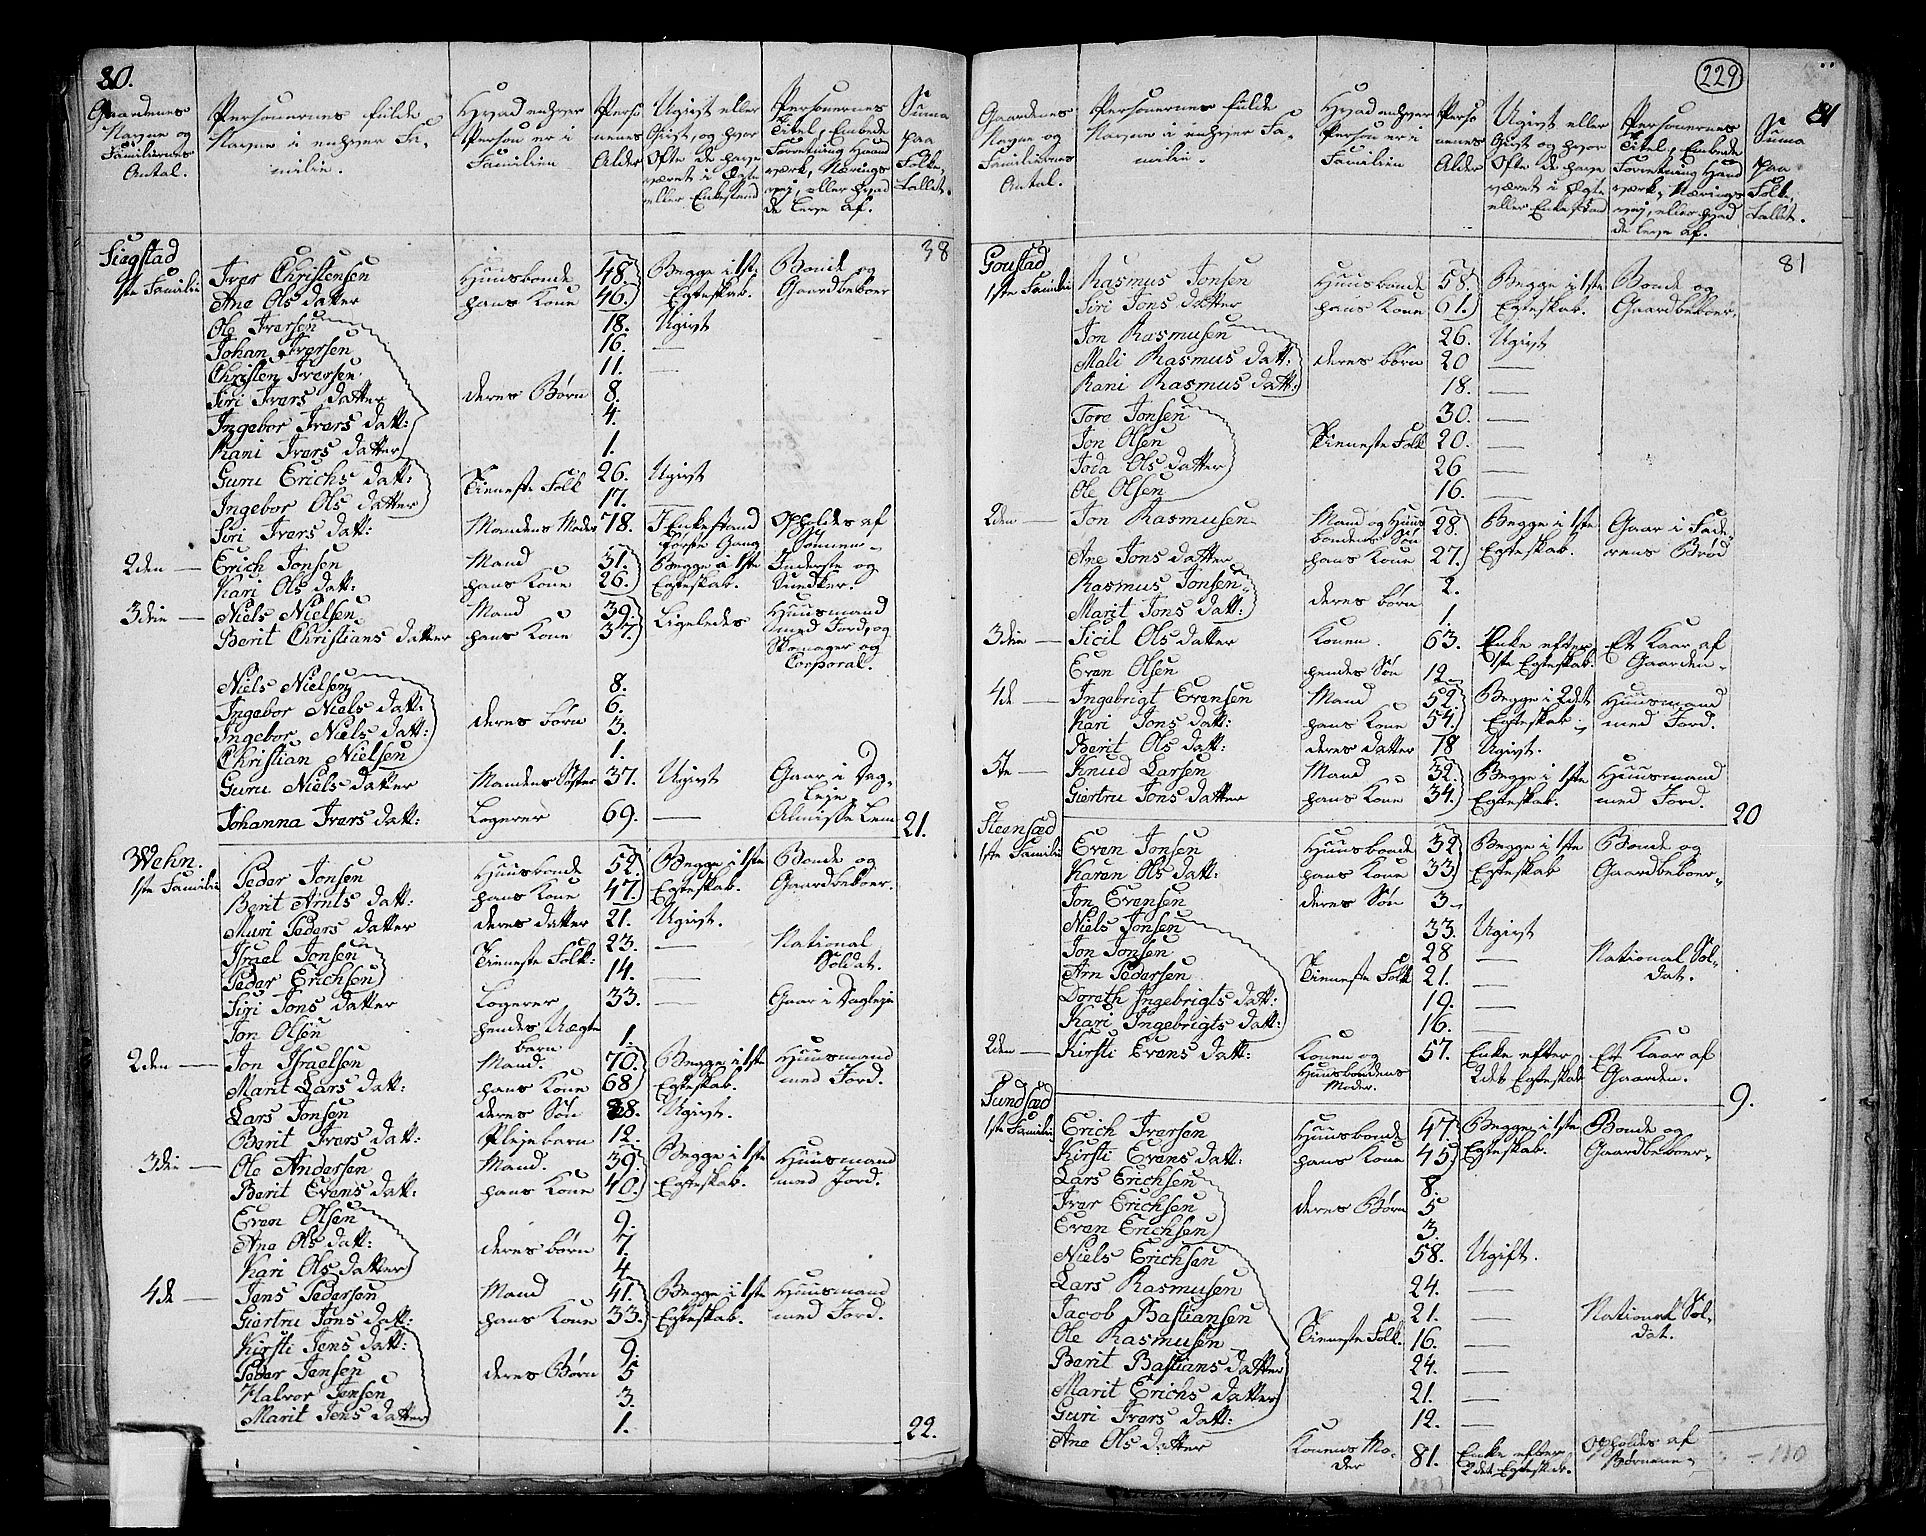 80.
Gaardenes Navne og Familiernes Antal.
Personernes fulde Navne i enhver Familie.
Hvad enhver Person er i Familien
Personenes Alder
Ugivt eller Givt, og hvor Ofte de have været i Ægte eller Enkestand
Personernes Titel, Embede Forretning Haandværk, Nærings vej, eller hvad de leve af.
Suma paa Folke-tallet.
Siegstad 38
1ste Familie Iver Christensen Huusbonde 48. Begge i 1ste Bonde og
Ane Ols datter hans Kone 46. Egteskab. Gaardbeboer
Ole Iversen 18. Ugivt
Johan Iversen 16. —
Christen Iversen 11. —
Siri Ivers datter deres Børn 8.
Ingebor Ivers datt: 4.
Rani Ivers datter 1.
Guru Erichs datt: Tieneste Folk 26. Ugivt
Ingebor Ols datter 17.
Siri Ivers datt: Mandens Moder 78. I Enkestand Første Gang Opholdes af Sønnen
2den — Erich Jonsen Mand 31. Begge i 1ste Inderste og
Kari Ols datt: hans Kone 26. Egteskab. Snedker.
3die — Niels Nielsen Mand 39. Ligeledes Huusmand
Berit Christians datter hans Kone 37. med Jord, og Skomager og Corporal.
Niels Nielsen 8.
Ingebor Niels datt: deres børn 6.
Ingebor Niels datt: 3.
Christian Nielsen 1.
Guru Niels datter Mandens Søster 37. Ugivt Gaar i Dagleje
Johanna Ivers datt: Logerer 69. — Almisse Lem 21.
Wehn.
1ste Familie Peder Jonsen Huusbonde 52. Begge i 1ste Bonde og
Berit Arnts datt: hans Kone 47. Egteskab. Gaardbeboer.
Muri Peders datter deres datter 21. Ugivt.
Israel Jonsen Tieneste Folk: 23. — National Soldat.
Peder Erichsen 14. —
Siri Jons datter Logerer 33. — Gaar i Dagleje
Jon Olsen hendes Uægte barn. 1.
2den — Jon Israelsen Mand. 70. Begge i 1ste Huusmand
Marit Lars datt: hans Kone 68 Egteskab. med Jord.
Lars Jonsen deres Søn 28. Ugivt.
Berit Ivers datt: Plejebarn 12.
3die — Ole Andersen Mand. 39. Begge i 1ste Huusmand
Berit Evens datt: hans Kone 40. Egteskab. med Jord.
Even Olsen 9.
Ane Ols datt: deres børn 7.
Kari Ols datter 4.
4de — Jens Pedersen Mand 41. Begge i 1ste Huusmand
Giertru Jons datt: hans Kone 33. Egteskab. med Jord.
Kirsti Jens datt: 9.
Peder Jensen deres Børn 5
Halvor Jensen 3.
Marit Jens datter 1. 22.
229
81
Gaardenes Navne og Familiernes Antal.
Personernes fulde Navne i enhver Familie.
Hvad enhver Person er i Familien
Personenes Alder
Ugivt eller Givt og hvor Ofte de have været i Ægte eller Enkestand
Personernes Titel, Embede Forretning Handværk, Nærings vej, eller hvad de leve af.
Suma paa Folke-tallet.
Goustad 81
1ste Familie Rasmus Jonsen Huusbonde 58. Begge i 1ste Bonde og
Siri Jons datter hans Kone 61. Egteskab. Gaardbeboer.
Jon Rasmusen 26. Ugivt
Mali Rasmus datt: deres børn 20 —
Rani Rasmus datt: 18. —
Tore Jonsen 30. —
Jon Olsen Tieneste Folk 20. —
Joda Ols datter 26 —
Ole Olsen 16. —
2den — Jon Rasmusen Mand og Huusbondens Søn 28. Begge i 1ste Gaar i Fade-
Ane Jons datter hans Kone 27. Egteskab. rens Brød
Rasmus Jonsen deres børn 2.
Marit Jons datt: 1.
3die — Sicil Ols datter Konen 63. Enke efter 1ste Egteskab. Et Kaar af Gaarden
Even Olsen hendes Søn 12.
4de — Ingebrigt Evensen Mand 52. Begge i 2det Huusmand
Kari Jons datt: hans Kone 54. Egteskab med Jord.
Berit Ols datt: deres datter 18 Ugivt.
5te — Knud Larsen Mand 32. Begge i 1ste Huusmand
Giertru Jons datter hans Kone 34. Egteskab. med Jord. 20
Steensæd
1ste Familie Even Jonsen Huusbonde 32 Begge i 1ste Bonde og
Karen Ols datt: hans Kone 33 Egteskab Gaardbeboer
Jon Evensen deres Søn 3.
Niels Jonsen 33. Ugivt
Jon Jonsen 28 — National Soldat.
Arn Pedersen Tieneste Folk 21. —
Doreth Ingebrigts datt: 19. —
Kari Ingebrigts datt: 16. —
2den — Kirsti Evens datt: Konen og Huusbondens Moder 57. Enke efter 2det Egteskab Et Kaar af Gaarden. 9.
Sundsæd
1ste Familie Erich Iversen Huusbonde 47. Begge i 1ste Bonde og
Kirsti Evens datt: hans Kone 45. Egteskab. Gaardbeboer
Lars Erichsen 8.
Iver Erichsen deres Børn 5
Even Erichsen 3.
Niels Erichsen 58. Ugift.
Lars Rasmusen 24. —
Jacob Bastiansen 21. — National Soldat.
Ole Rasmusen Tieneste Folk 16. —
Berit Bastians datter 24. —
Marit Erichs datter 21. —
Guri Ivers datt: 12. —
Ane Ols datter Konens Moder 81. Enke efter 2det Egteskab. Opholdes af Børnene 110